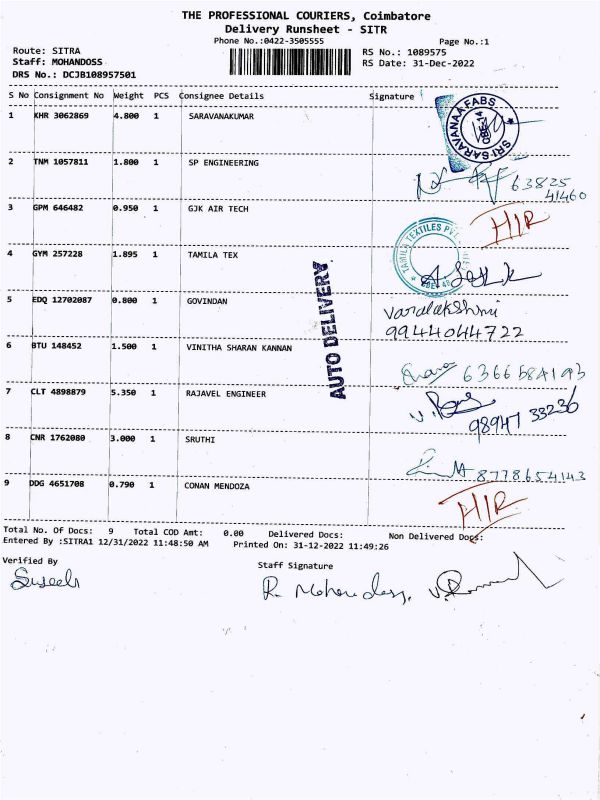 THE PROFESSIONAL COURIERS, Coimbatore
Delivery Runsheet - SITR
Phone No.:0422-3505555 Page No.:1
Route: SITRA RS No.: 1089575
Staff: MOHANDOSS RS Date: 31-Dec-2022
DRS No.: DCJB108957501
S No Consignment No Weight PCS Consignee Details Signature
1 KHR 3062869 4.800 1 SARAVANAKUMAR
SRI-SARAVANAA FABS
2 TNM 1057811 1.800 1 SP ENGINEERING
63825
41460
3 GPM 646482 0.950 1 GJK AIR TECH
4 GYM 257228 1.895 1 TAMILA TEX
TAMILA TEXTILES PVT
5 EDQ 12702087 0.800 1 GOVINDAN
Varalakshmi
9944044722
AUTO DELIVERY
6 BTU 148452 1.500 1 VINITHA SHARAN KANNAN
6366584193
7 CLT 4898879 5.350 1 RAJAVEL ENGINEER
98947 33236
8 CNR 1762080 3.000 1 SRUTHI
8778654143
9 DDG 4651708 0.790 1 CONAN MENDOZA
Total No. Of Docs: 9 Total COD Amt: 0.00 Delivered Docs: Non Delivered Docs:
Entered By :SITRA1 12/31/2022 11:48:50 AM Printed On: 31-12-2022 11:49:26
Verified By
Staff Signature
R. Mohandoss